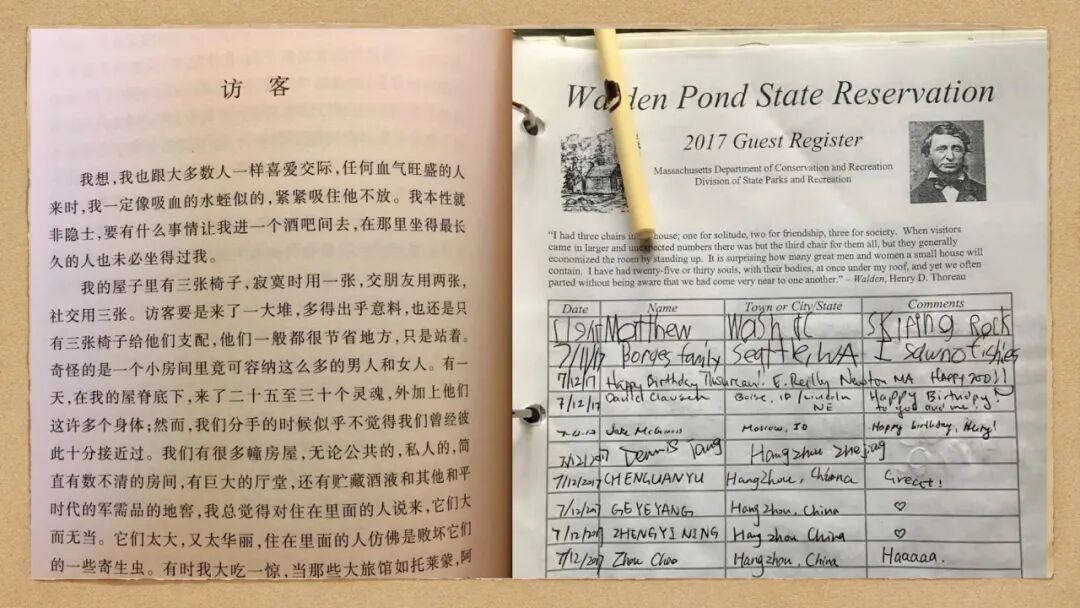 访客
我想,我也跟大多数人一样喜爱交际,任何血气旺盛的人
来时,我一定像吸血的水蛭似的,紧紧吸住他不放。我本性就
非隐士,要有什么事情让我进一个酒吧间去,在那里坐得最长
久的人也未必坐得过我。
我的屋子里有三张椅子,寂寞时用一张,交朋友用两张,
社交用三张。访客要是来了一大堆,多得出乎意料,也还是只
有三张椅子给他们支配,他们一般都很节省地方,只是站着。
奇怪的是一个小房间里竟可容纳这么多的男人和女人。有一
天,在我的屋脊底下,来了二十五至三十个灵魂,外加上他们
这许多个身体;然而,我们分手的时候似乎不觉得我们曾经彼
此十分接近过。我们有很多幢房屋,无论公共的,私人的,简
直有数不清的房间,有巨大的厅堂,还有贮藏酒液和其他和平
时代的军需品的地窖,我总觉得对住在里面的人说来,它们大
而无当。它们太大,又太华丽,住在里面的人仿佛是败坏它们
的一些寄生虫。有时我大吃一惊,当那些大旅馆如托莱蒙,阿
Walden Pond State Reservation
2017 Guest Register
Massachusetts Department of Conservation and Recreation
Division of State Parks and Recreation
"I had three chairs in house; one for solitude, two for friendship, three for society. When visitors
came in larger and unexpected numbers there was but the third chair for them all, but they generally
economized the room by standing up. It is surprising how many great men and women a small house will
contain. I have had twenty-five or thirty souls, with their bodies, at once under my roof, and yet we often
parted without being aware that we had come very near to one another." – Walden, Henry D. Thoreau
Date Name Town or City/State Comments
Matthew Wash DC SKiping Rock
7/11/17 Borges family Seattle, WA I saw no fishies
7/12/17 Happy Birthday Thoreau!! E. Reilly Newton MA Happy 200!!
7/12/17 David Clausen Boise, ID / Lincoln NE Happy Birthday! to you and me!
Jake McGinnis Moscow, ID Happy birthday, Henry!
7/12/2017 Dennis Tang Hangzhou Zhejiang
7/12/2017 CHENGUANYU HangZhou, China Great!
7/12/2017 GEYEYANG Hangzhou, China ♡
7/12/2017 ZHENGYINING Hangzhou China ♡
7/12/2017 Zhou Chao Hangzhou, China Haaaaa.